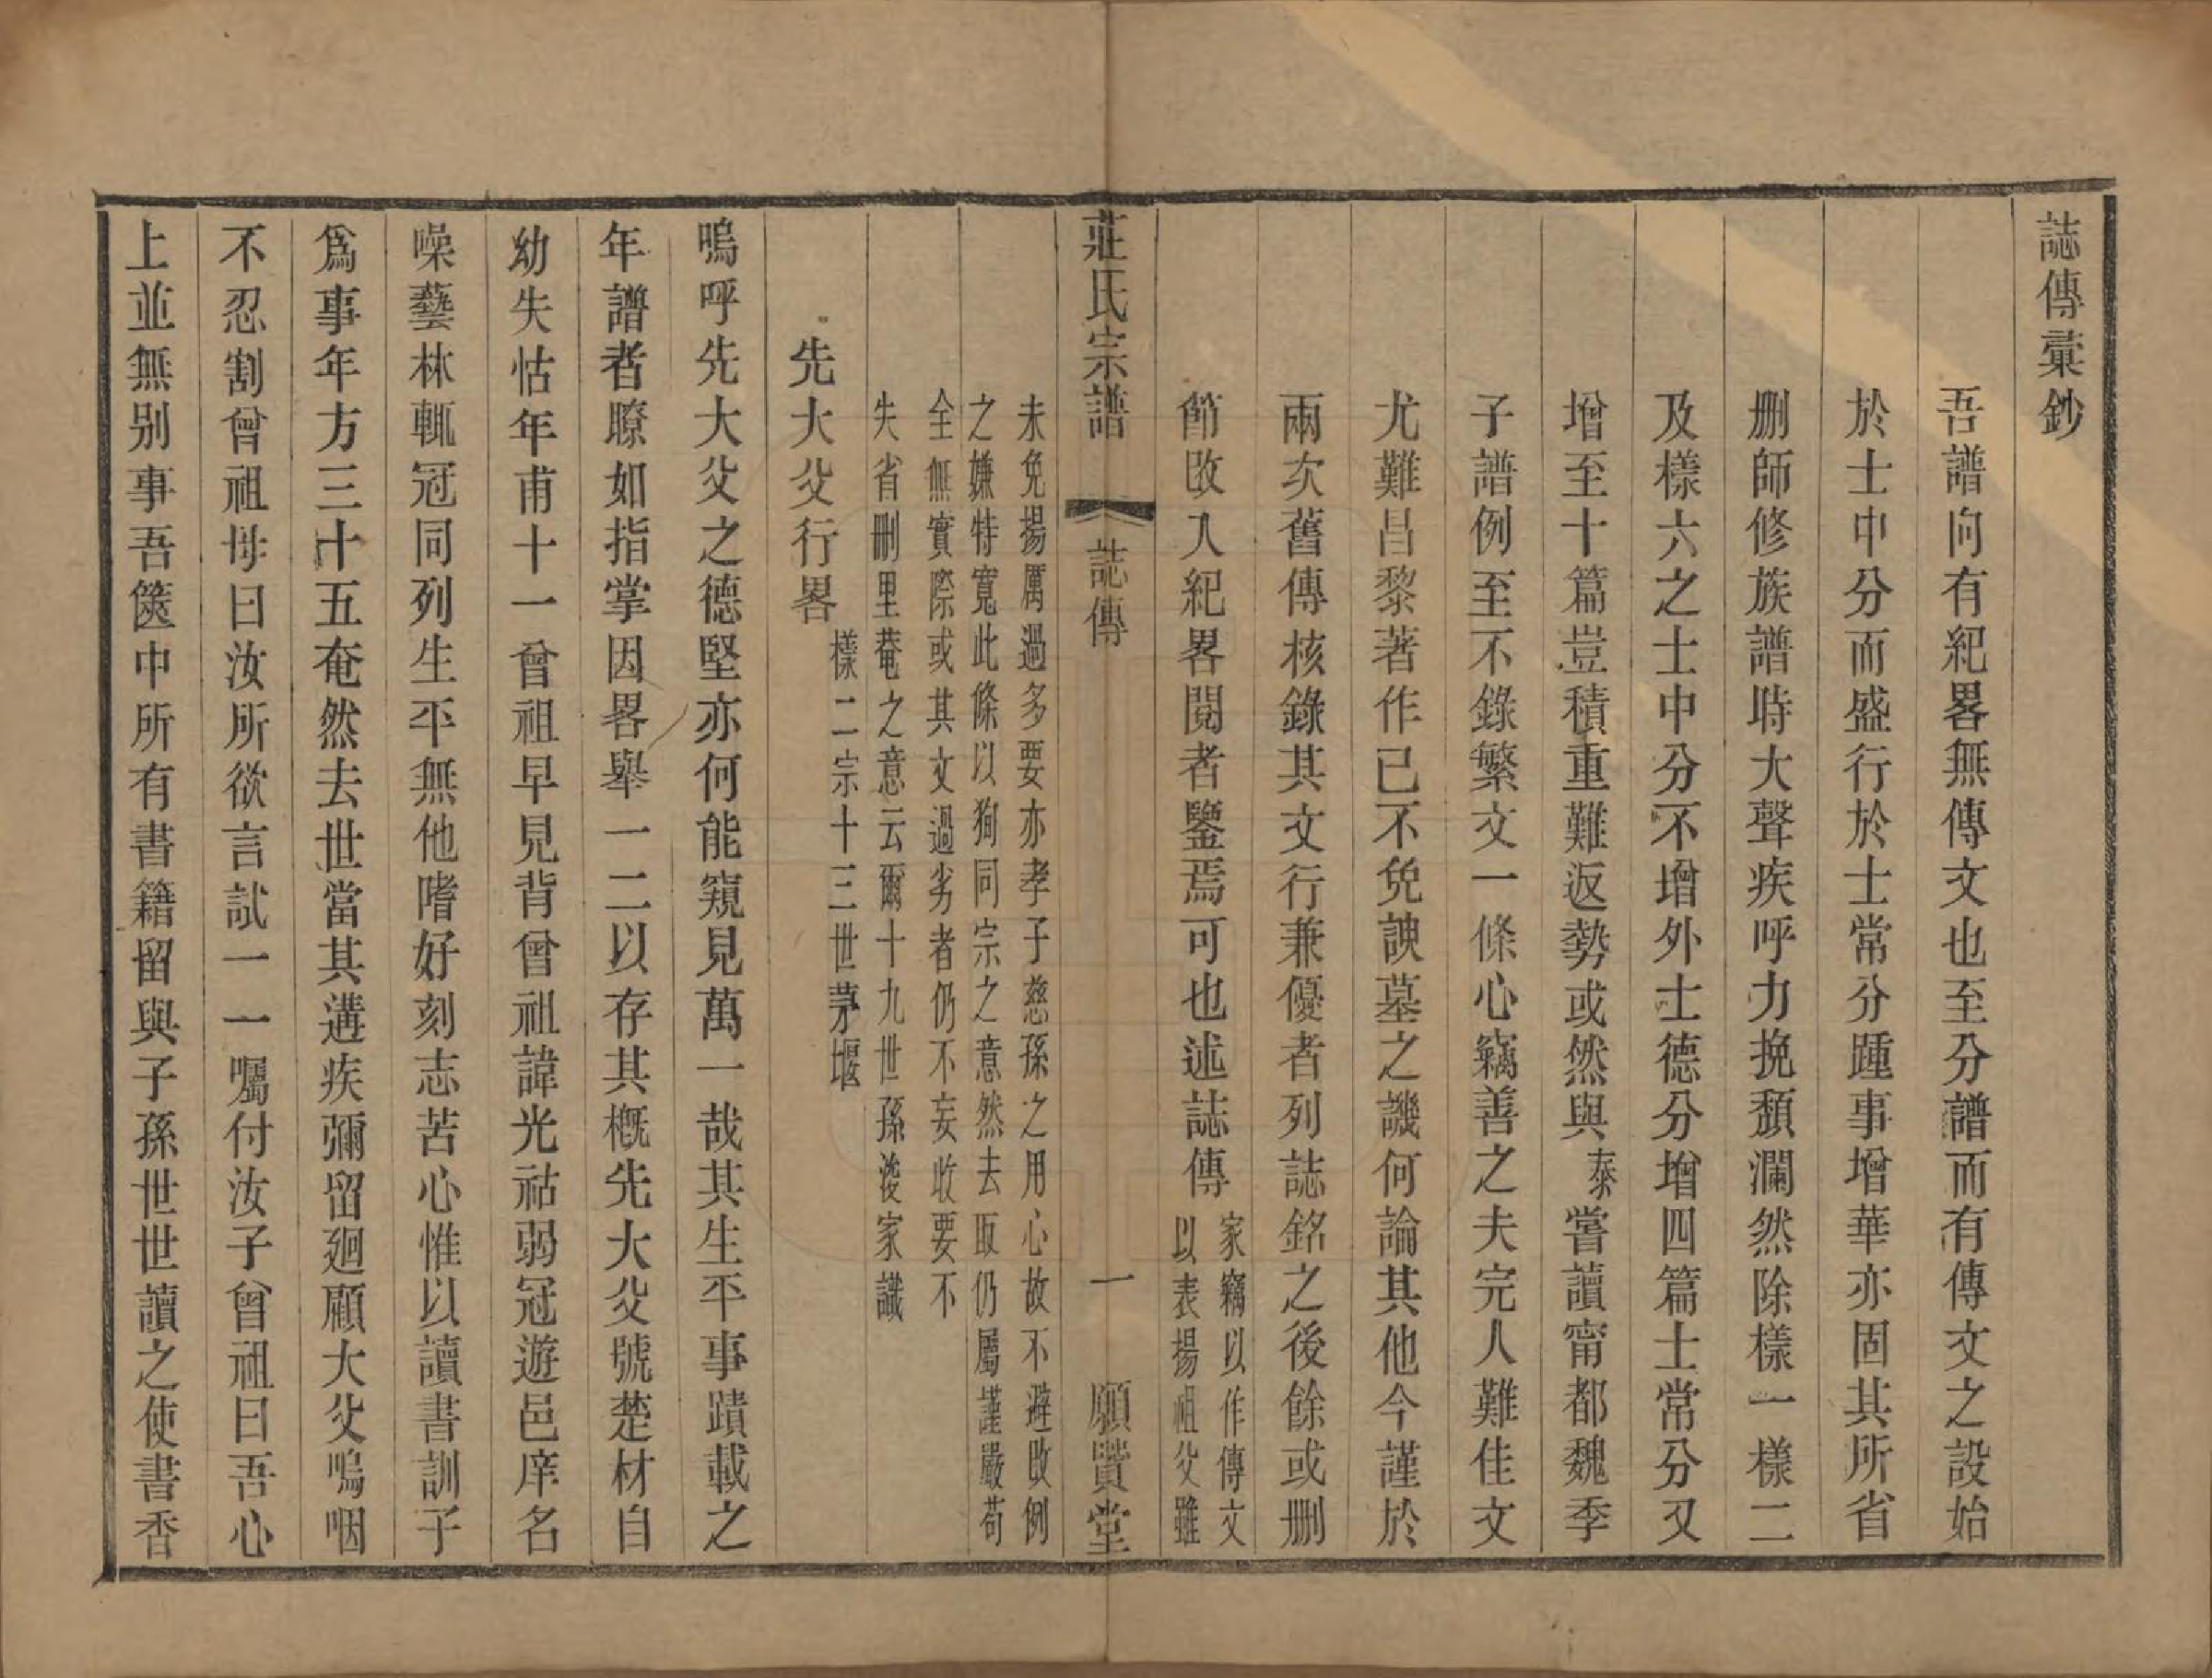 誌傳彙鈔
吾譜向有紀畧無傳文也至分譜而有傳文之設始
於士中分而盛行於士常分踵事增華亦固其所省
刪師修族譜時大聲疾呼力挽頹瀾然除樣一樣二
及樣六之士中分不增外士德分增四篇士常分又
增至十篇豈積重難返勢或然與泰嘗讀甯都魏季
子譜例至不錄繁文一條心竊善之夫完人難佳文
尤難昌黎著作已不免諛墓之譏何論其他今謹於
兩次舊傳核錄其文行兼優者列誌銘之後餘或刪
節改入紀畧閱者鑒焉可也述誌傳
家竊以作傳文
以表揚祖父雖
莊氏宗譜
誌傳
一
願賢堂
未免揚厲過多要亦孝子慈孫之用心故不避改例
之嫌特寬此條以狥同宗之意然去取仍屬謹嚴苟
全無實際或其文過劣者仍不妄收要不
失省刪里菴之意云爾十九世孫浚家識
先大父行畧
樣二宗十三世茅堰
嗚呼先大父之德堅亦何能窺見萬一哉其生平事蹟載之
年譜者瞭如指掌因畧舉一二以存其概先大父號楚材自
幼失怙年甫十一曾祖早見背曾祖諱光祜弱冠遊邑庠名
噪藝林輒冠同列生平無他嗜好刻志苦心惟以讀書訓子
爲事年方三十五奄然去世當其遘疾彌留廻顧大父嗚咽
不忍割曾祖母曰汝所欲言試一一囑付汝子曾祖曰吾心
上並無别事吾篋中所有書籍留與子孫世世讀之使書香